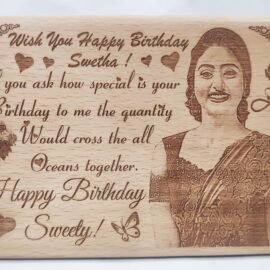 Wish You Happy Birthday
Swetha !
you ask how special is your
Birthday to me the quantity
Would cross the all
Oceans together.
Happy Birthday
Sweety!